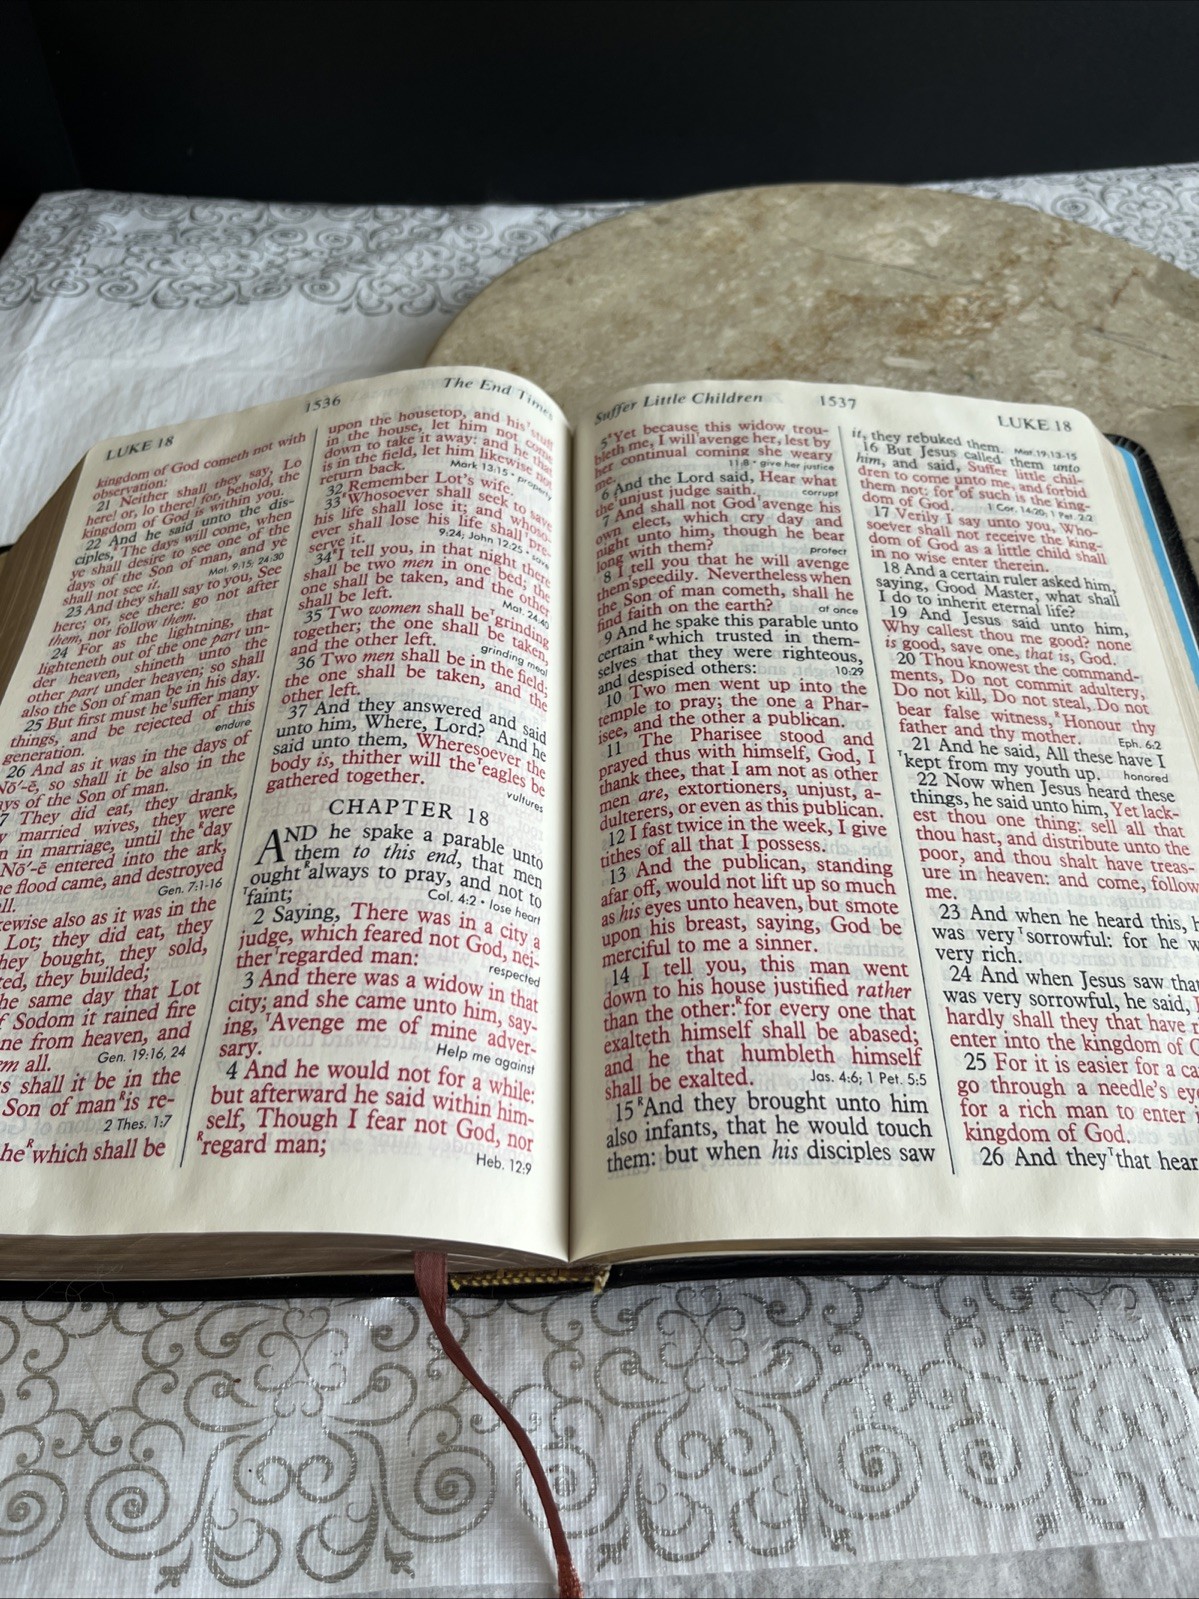 LUKE 18
1536
The End Times
kingdom of God cometh not with
observation:
21 Neither shall they say, Lo
here! or, lo there! for, behold, the
kingdom of God is within you.
22 And he said unto the dis-
ciples, ᴿThe days will come, when
ye shall desire to see one of the
days of the Son of man, and ye
shall not see it. Mat. 9:15; 24:30
23 And they shall say to you, See
here; or, see there: go not after
them, nor follow them.
24 For as the lightning, that
lighteneth out of the one part un-
der heaven, shineth unto the
other part under heaven; so shall
also the Son of man be in his day.
25 But first must he ᵀsuffer many
things, and be rejected of this
generation. endure
26 And as it was in the days of
Nō′-ē, so shall it be also in the
ays of the Son of man.
7 They did eat, they drank,
y married wives, they were
n in marriage, until the ᴿday
Nō′-ē entered into the ark,
he flood came, and destroyed
all. Gen. 7:1-16
ewise also as it was in the
Lot; they did eat, they
hey bought, they sold,
ted, they builded;
he same day that Lot
f Sodom it rained fire
ne from heaven, and
em all. Gen. 19:16, 24
s shall it be in the
Son of man ᴿis re-
2 Thes. 1:7
he ᴿwhich shall be
upon the housetop, and his ᵀstuff
in the house, let him not come
down to take it away: and he that
is in the field, let him likewise not
return back. Mark 13:15 • property
32 Remember Lot's wife.
33 ᴿWhosoever shall seek to save
his life shall lose it; and whoso-
ever shall lose his life shall ᵀpre-
serve it. 9:24; John 12:25 • save
34 ᴿI tell you, in that night there
shall be two men in one bed; the
one shall be taken, and the other
shall be left. Mat. 24:40
35 Two women shall be ᵀgrinding
together; the one shall be taken,
and the other left. grinding meal
36 Two men shall be in the field;
the one shall be taken, and the
other left.
37 And they answered and said
unto him, Where, Lord? And he
said unto them, Wheresoever the
body is, thither will the ᵀeagles be
gathered together. vultures
CHAPTER 18
AND he spake a parable unto
them to this end, that men
ought ᴿalways to pray, and not to
ᵀfaint; Col. 4:2 • lose heart
2 Saying, There was in a city a
judge, which feared not God, nei-
ther ᵀregarded man: respected
3 And there was a widow in that
city; and she came unto him, say-
ing, ᵀAvenge me of mine adver-
sary. Help me against
4 And he would not for a while:
but afterward he said within him-
self, Though I fear not God, nor
ᴿregard man; Heb. 12:9
Suffer Little Children
1537
LUKE 18
5 ᴿYet because this widow trou-
bleth me, I will ᵀavenge her, lest by
her continual coming she weary
me. 11:8 • give her justice
6 And the Lord said, Hear what
the ᵀunjust judge saith. corrupt
7 And shall not God ᵀavenge his
own elect, which cry day and
night unto him, though he bear
long with them? protect
8 I tell you that he will avenge
them ᵀspeedily. Nevertheless when
the Son of man cometh, shall he
find faith on the earth? at once
9 And he spake this parable unto
certain ᴿwhich trusted in them-
selves that they were righteous,
and despised others: 10:29
10 Two men went up into the
temple to pray; the one a Phar-
isee, and the other a publican.
11 The Pharisee stood and
prayed thus with himself, God, I
thank thee, that I am not as other
men are, extortioners, unjust, a-
dulterers, or even as this publican.
12 I fast twice in the week, I give
tithes of all that I possess.
13 And the publican, standing
afar off, would not lift up so much
as his eyes unto heaven, but smote
upon his breast, saying, God be
merciful to me a sinner.
14 I tell you, this man went
down to his house justified rather
than the other: ᴿfor every one that
exalteth himself shall be abased;
and he that humbleth himself
shall be exalted. Jas. 4:6; 1 Pet. 5:5
15 ᴿAnd they brought unto him
also infants, that he would touch
them: but when his disciples saw
it, they rebuked them. Mat. 19:13-15
16 But Jesus called them unto
him, and said, Suffer little chil-
dren to come unto me, and forbid
them not: for ᴿof such is the king-
dom of God. 1 Cor. 14:20; 1 Pet. 2:2
17 Verily I say unto you, Who-
soever shall not receive the king-
dom of God as a little child shall
in no wise enter therein.
18 And a certain ruler asked him,
saying, Good Master, what shall
I do to inherit eternal life?
19 And Jesus said unto him,
Why callest thou me good? none
is good, save one, that is, God.
20 Thou knowest the command-
ments, Do not commit adultery,
Do not kill, Do not steal, Do not
bear false witness, ᴿHonour thy
father and thy mother. Eph. 6:2
21 And he said, All these have I
ᵀkept from my youth up. honored
22 Now when Jesus heard these
things, he said unto him, Yet lack-
est thou one thing: sell all that
thou hast, and distribute unto the
poor, and thou shalt have treas-
ure in heaven: and come, follow
me.
23 And when he heard this, h
was very ᵀsorrowful: for he w
very rich.
24 And when Jesus saw that
was very sorrowful, he said,
hardly shall they that have
enter into the kingdom of G
25 For it is easier for a ca
go through a needle's eye
for a rich man to enter
kingdom of God.
26 And they ᵀthat hear